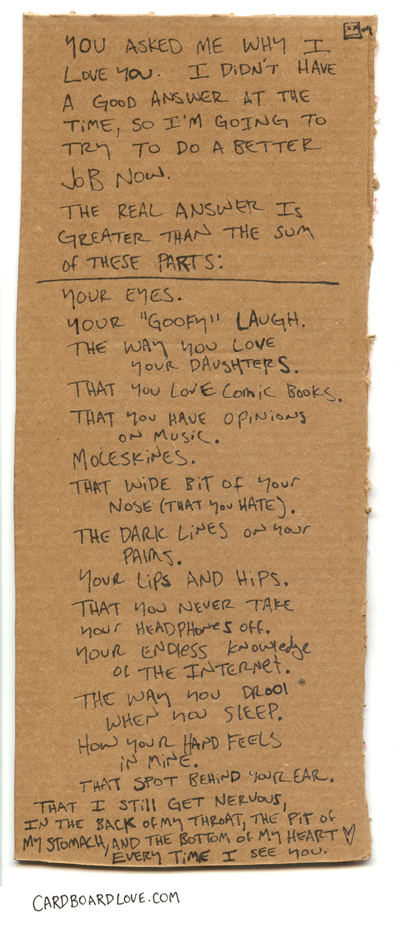 YOU ASKED ME WHY I
LOVE YOU. I DIDN'T HAVE
A GOOD ANSWER AT THE
TIME, SO I'M GOING TO
TRY TO DO A BETTER
JOB NOW.
THE REAL ANSWER IS
GREATER THAN THE SUM
OF THESE PARTS:
YOUR EYES.
YOUR "GOOFY" LAUGH.
THE WAY YOU LOVE
YOUR DAUGHTERS.
THAT YOU LOVE COMIC BOOKS.
THAT YOU HAVE OPINIONS
ON MUSIC.
MOLESKINES.
THAT WIDE BIT OF YOUR
NOSE (THAT YOU HATE).
THE DARK LINES ON YOUR
PALMS.
YOUR LIPS AND HIPS.
THAT YOU NEVER TAKE
YOUR HEADPHONES OFF.
YOUR ENDLESS KNOWLEDGE
OF THE INTERNET.
THE WAY YOU DROOL
WHEN YOU SLEEP.
HOW YOUR HAND FEELS
IN MINE.
THAT SPOT BEHIND YOUR EAR.
THAT I STILL GET NERVOUS,
IN THE BACK OF MY THROAT, THE PIT OF
MY STOMACH, AND THE BOTTOM OF MY HEART ♡
EVERY TIME I SEE YOU.
CARDBOARDLOVE.COM